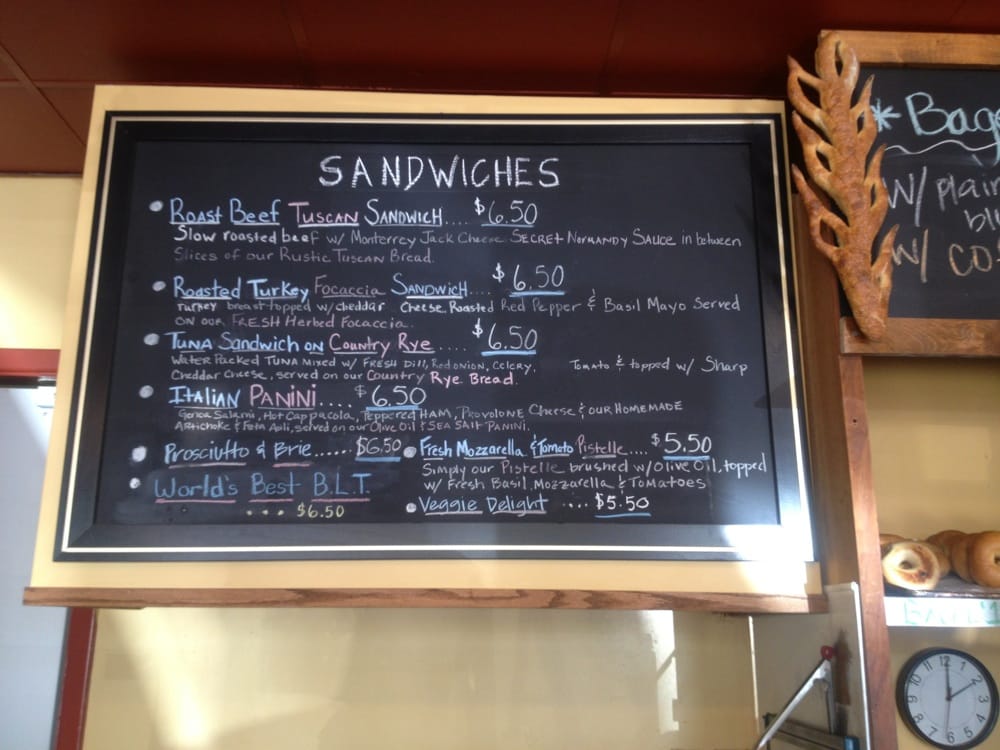 SANDWICHES
Roast Beef Tuscan Sandwich.... $6.50
Slow roasted beef w/ Monterrey Jack Cheese Secret Normandy Sauce in between
Slices of our Rustic Tuscan Bread.
Roasted Turkey Focaccia Sandwich.... $6.50
Turkey breast topped w/ cheddar Cheese, Roasted Red Pepper & Basil Mayo Served
on our Fresh Herbed Focaccia.
Tuna Sandwich on Country Rye..... $6.50
Water Packed Tuna mixed w/ Fresh Dill, Red onion, Celery, Tomato & topped w/ Sharp
Cheddar Cheese, served on our Country Rye Bread.
Italian Panini.... $6.50
Genoa Salami, Hot Cappacola, Peppered Ham, Provolone Cheese & our Homemade
Artichoke & Feta Aoli, served on our Olive Oil & Sea Salt Panini.
Prosciutto & Brie...... $6.50
World's Best B.L.T.
... $6.50
Fresh Mozzarella & Tomato Pistelle.... $5.50
Simply our Pistelle brushed w/ Olive Oil, topped
w/ Fresh Basil, Mozzarella & Tomatoes
Veggie Delight .... $5.50
* Bag
W/ plain
W/ co
12
1
2
3
4
5
6
7
8
9
10
11